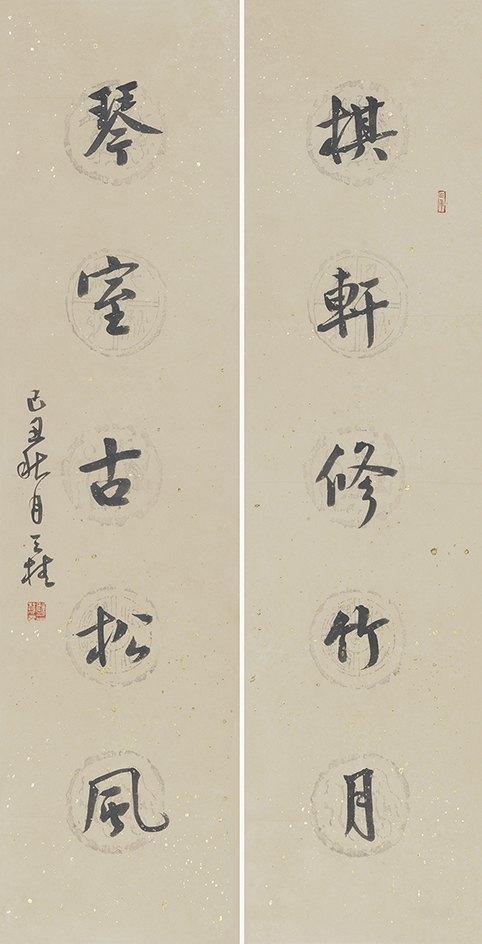 棋軒修竹月
琴室古松風
己丑秋月